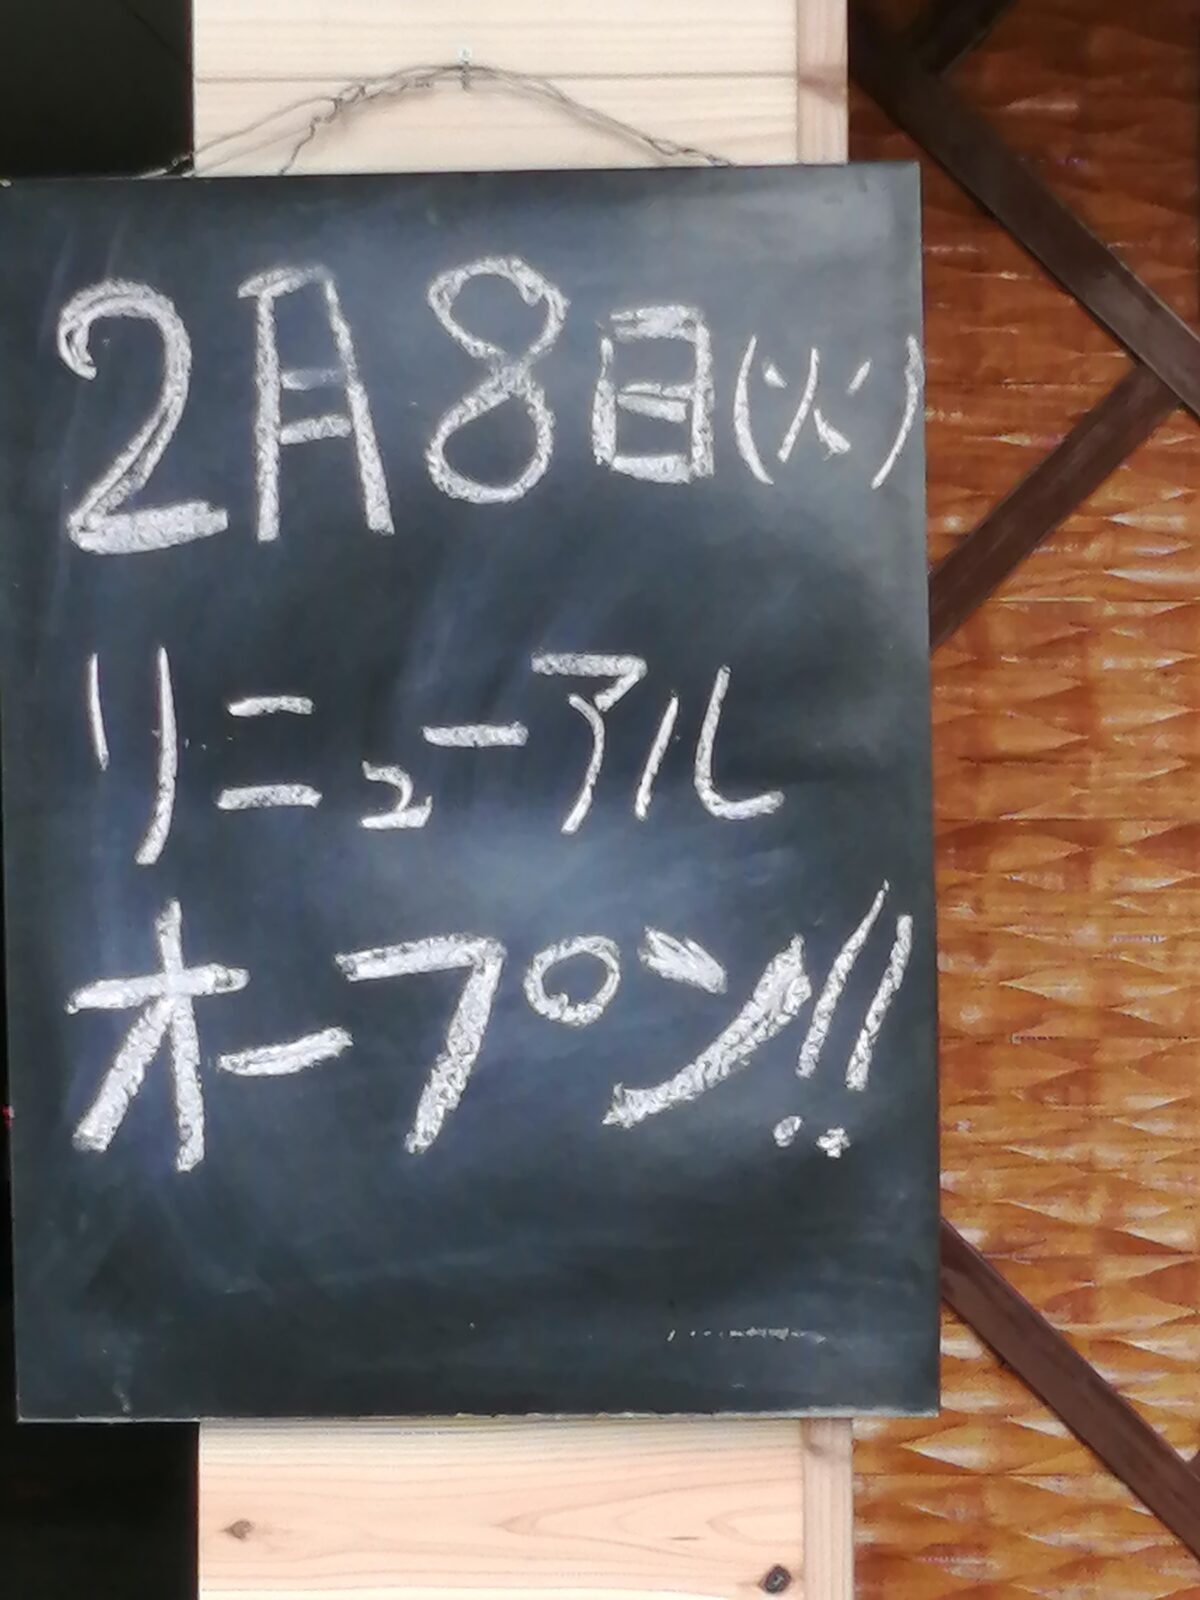 2月8日(火)
リニューアル
オープン!!